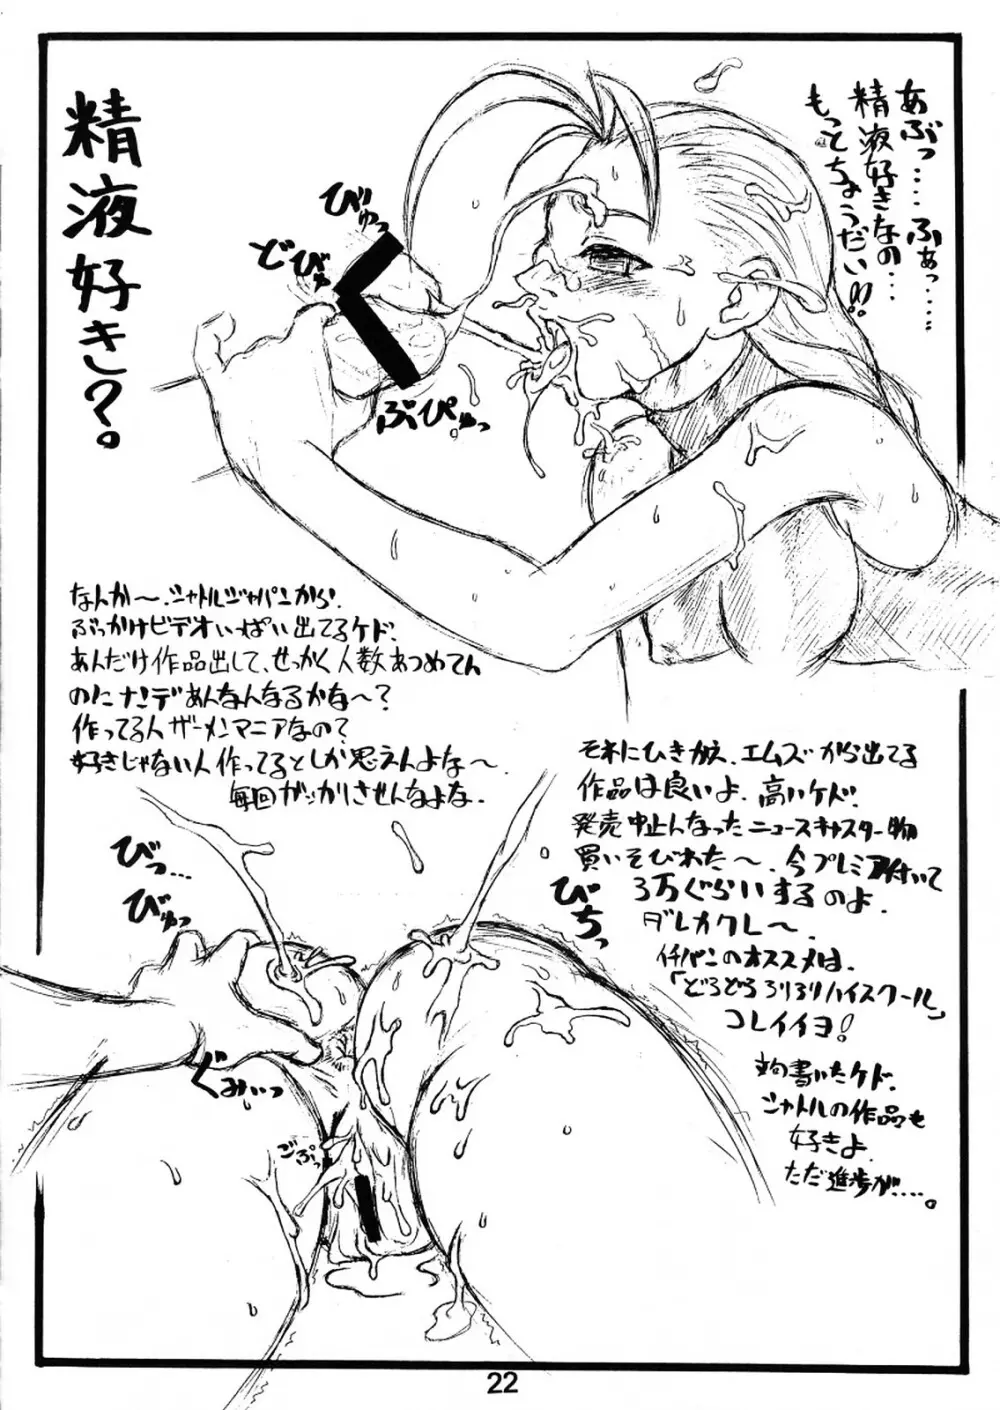 精液好き?。
あぶっ‥‥ふぁっ‥‥‥
精液好きなの‥‥
もっとちょうだい!!
びゅっ
どびゅっ
ぶぴゅっ
なんか〜、シャトルジャパンから、
ぶっかけビデオいっぱい出てるケド、
あんだけ作品出して、せっかく人数あつめてん
のにナンデあんなんなるかな〜?
作ってる人ザーメンマニアなの?
好きじゃない人作ってるとしか思えんよな〜、
毎回ガッカリさせんなよな、
それにひきかえ、エムズから出てる
作品は良いよ、高いケド、
発売中止んなったニュースキャスター物
買いそびれた〜、今プレミア付いて
3万ぐらいするのよ、
ダレカクレ〜、
びっ‥‥
びゅっ
びちっ
ぐみぃっ
ごぷっ
シャトルの作品も
好きよ、
ただ進歩が‥‥。
22